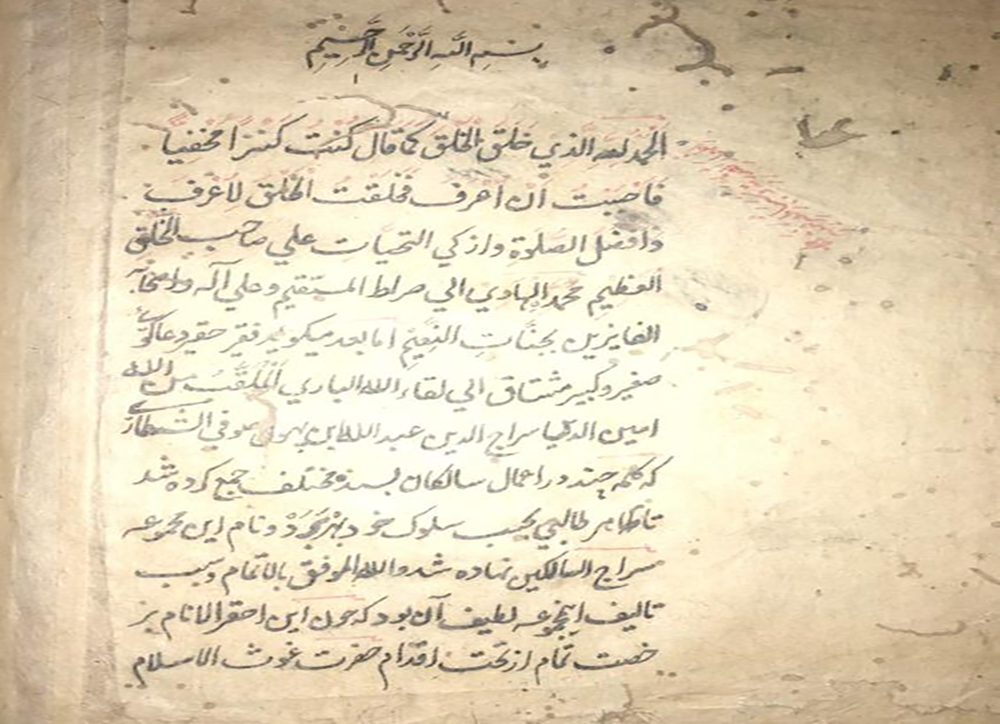 بسم الله الرحمن الرحيم
الحمد لله الذي خلق الخلق كما قال كنت كنزا مخفيا
فاحببت ان اعرف فخلقت الخلق لاعرف
وافضل الصلوة وازكي التحيات علي صاحب الخلق
العظيم محمد الهادي الي صراط المستقيم وعلي آله واصحابه
الفايزين بجنّات النعيم اما بعد ميكويد فقير حقير
صغير وكبير مشتاق الي لقاء الله الباري الملقب
امين الدنيا سراج الدين عبد الله ابن صوفي الشطاري
كه كلمه چند در اعمال سالكان بسند مختلف جمع كرده شد
تا ظاهر طالبي بحسب سلوك خود و نام اين مجموعه
سراج السالكين نهاده شد والله الموفق بالاتمام وسبب
تاليف اينمجموعه لطيف آن بود كه چون اين احقر الانام بر
خصت تمام از تحت اقدام حضرت غوث الاسلام